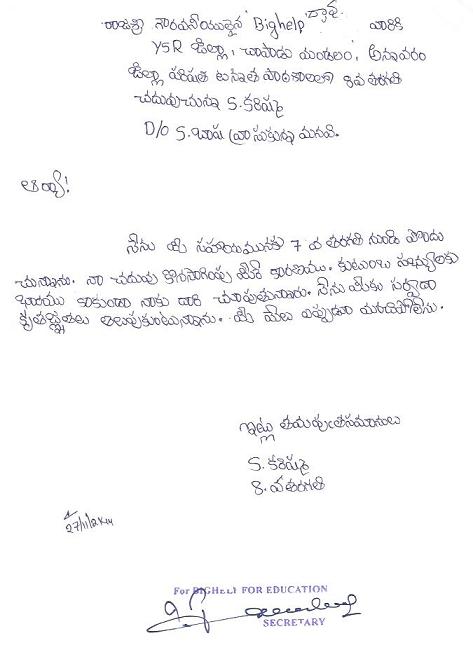 రాజశ్రీ గౌరవనీయులైన 'Bighelp' వారికి
YSR జిల్లా, చాపాడు మండలం, అన్నవరం
జిల్లా పరిషత్ ఉన్నత పాఠశాలలో 8వ తరగతి
చదువుచున్న S. కరిష్మ
D/o S. బాషా వ్రాసుకున్న మనవి.
ఆర్యా!
నేను మీ సహాయమును 7 వ తరగతి నుండి పొందు
చున్నాను. నా చదువు కొనసాగింపు మీరే కారణము. కుటుంబ సభ్యులకు
భారము కాకుండా నాకు దారి చూపుతున్నారు. నేను మీకు సర్వదా
కృతజ్ఞతలు తెలుపుకుంటున్నాను. మీ మేలు ఎప్పుడూ మరచిపోలేను.
ఇట్లు
S. కరిష్మ
8. వ తరగతి
27/11/2K14
For BIGHELP FOR EDUCATION
SECRETARY